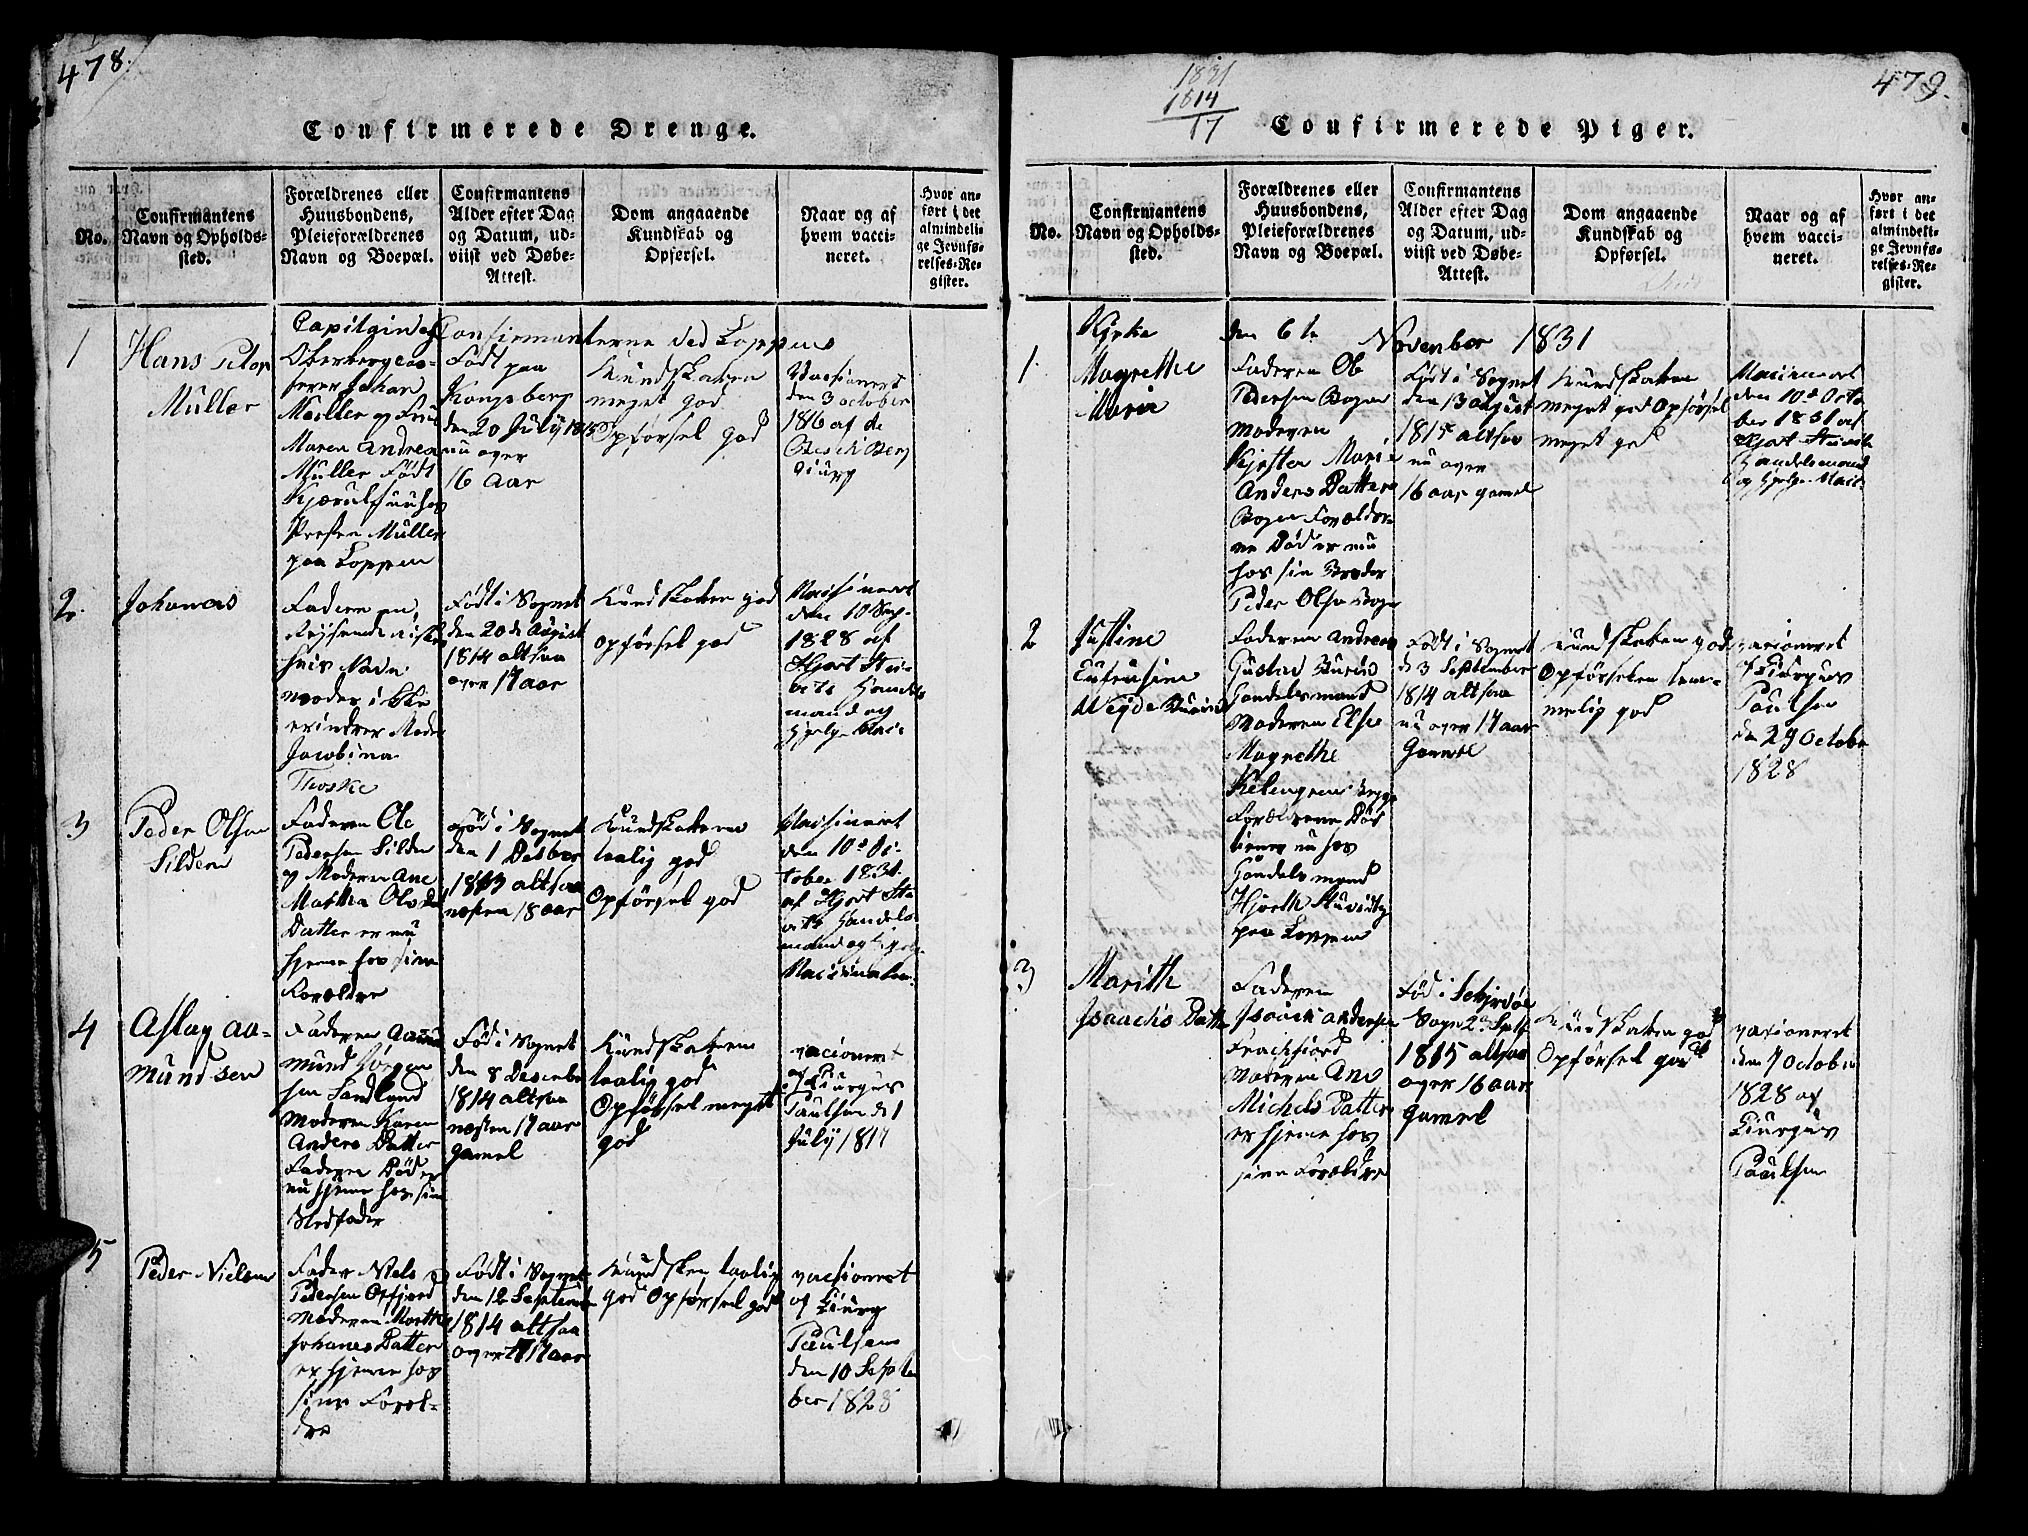 478.
Confirmerede Drenge.
No.
Confirmantens
Navn og Opholds-
sted.
Forældrenes eller
Huusbondens,
Pleieforældrenes
Navn og Boepæl.
Confirmantens
Alder efter Dag
og Datum, ud-
viist ved Døbe-
Attest.
Dom angaaende
Kundskab og
Opførsel.
Naar og af
hvem vacci-
neret.
Hvor an-
ført i det
almindeli-
ge Jevnfø-
relses-Re-
gister.
Confirmanterne ved Loppens
1
Hans Peter
Müller
Johan
Müller og Frue
Maren Andrea
Müller Født
Kjærulf nu hos
Presten Müller
paa Loppen
Født paa
Kongsberg
den 20 July 1815
nu over
16 aar
Kundskaben
meget god
Opførsel god
den 3 october
1816 af de
2.
Johannes
Faderen en
hvis Navn
moder ikke
erindrer Moder
Jacobina
Født i Sognet
den 20de August
1814 altsaa
over 17 aar
Kundskaben god
opførsel god
den 10 Sep.
1828 af
Hjort
mand og
3
Peder Olsen
Silden
Faderen Ole
Pedersen Silden
og Moderen Ane
Martha Ols
Datter er nu
hjeme hos sine
Forældre
Fød i Sognet
den 1 Desber
1813 altsaa
næsten 18 aar
Kundskaben
taalig god
Opførsel god
Vacsineret
den 10de Oc-
tober 1831
af Hjort
Handels
4
Aslag Aa-
mundsen
Faderen Aamund
Jørgen
sen Sandland
Moderen Karen
Anders Datter
Faderen Død er
nu hjeme hos sin
Stedfader
Fød i Sognet
den 8 Desember
1814 altsaa
næsten 17 aar
gamel
Kundskaben
taalig god
Opførsel meget
god
vacioneret
af
Paulsen de 1
July 1817
5
Peder Nielsen
Fader Niels
Pedersen Opfjord
Moderen Marthe
Johanes Datter
er hjeme hos
sine Forel-
dre
Født i Sognet
den 12 September
1814 altsaa
over 17 aar
Kundsken taalig
god Opførsel god
vacsioneret
af
Paulsen
den 10 Septem
ber 1828
479.
1831
1814
17
Confirmerede Piger.
No.
Confirmantens
Navn og Opholds-
sted.
Forældrenes eller
Huusbondens,
Pleieforældrenes
Navn og Boepæl.
Confirmantens
Alder efter Dag
og Datum, ud-
viist ved Døbe-
Attest.
Dom angaaende
Kundskab og
Opførsel.
Naar og af
hvem vacci-
neret.
Hvor an-
ført i det
almindeli-
ge Jevnfø-
relses-Re-
gister.
Kirke den 6te November 1831
1.
Magrethe
Maria
Faderen Ole
Pedersen Bogen
Moderen
Kjersten Marie
Anders Datter
Bogen Forælder-
ne Død er nu
hos sin Broder
Peder Olsen Bogen
Født i Sognet
den 13 august
1815 altsaa
nu over
16 aar gamel
Kundskaben
meget god Opførsel
meget god
den 10de Octo
ber 1831 af
Hjort
Handelsmand
2
Justine
Eufrusine
Faderen Andreas
Gustav Buck
Handelsmand
Moderen Else
Magrethe
Forældrene Død
nu hos
Handelsmand
paa Loppen
Født i Sognet
d 3 September
1814 altsaa
nu over 17 aar
Gamel
Kundskaben god
Opførselen tem-
melig god
vacioneret
af
Paulsen
den 29 October
1828
3
Marith
Isaachs Datter
Faderen
Isaach Andersen
Frachfiord
Moderen Ane
Michels Datter
er hjeme hos
sine Foreldre
Fød i
Sogn 2de Sept
1815 altsaa
over 16 aar
Gamel
Kundskaben god
Opførsel god
vacioneret
den 7 October
1828 af
Paulsen